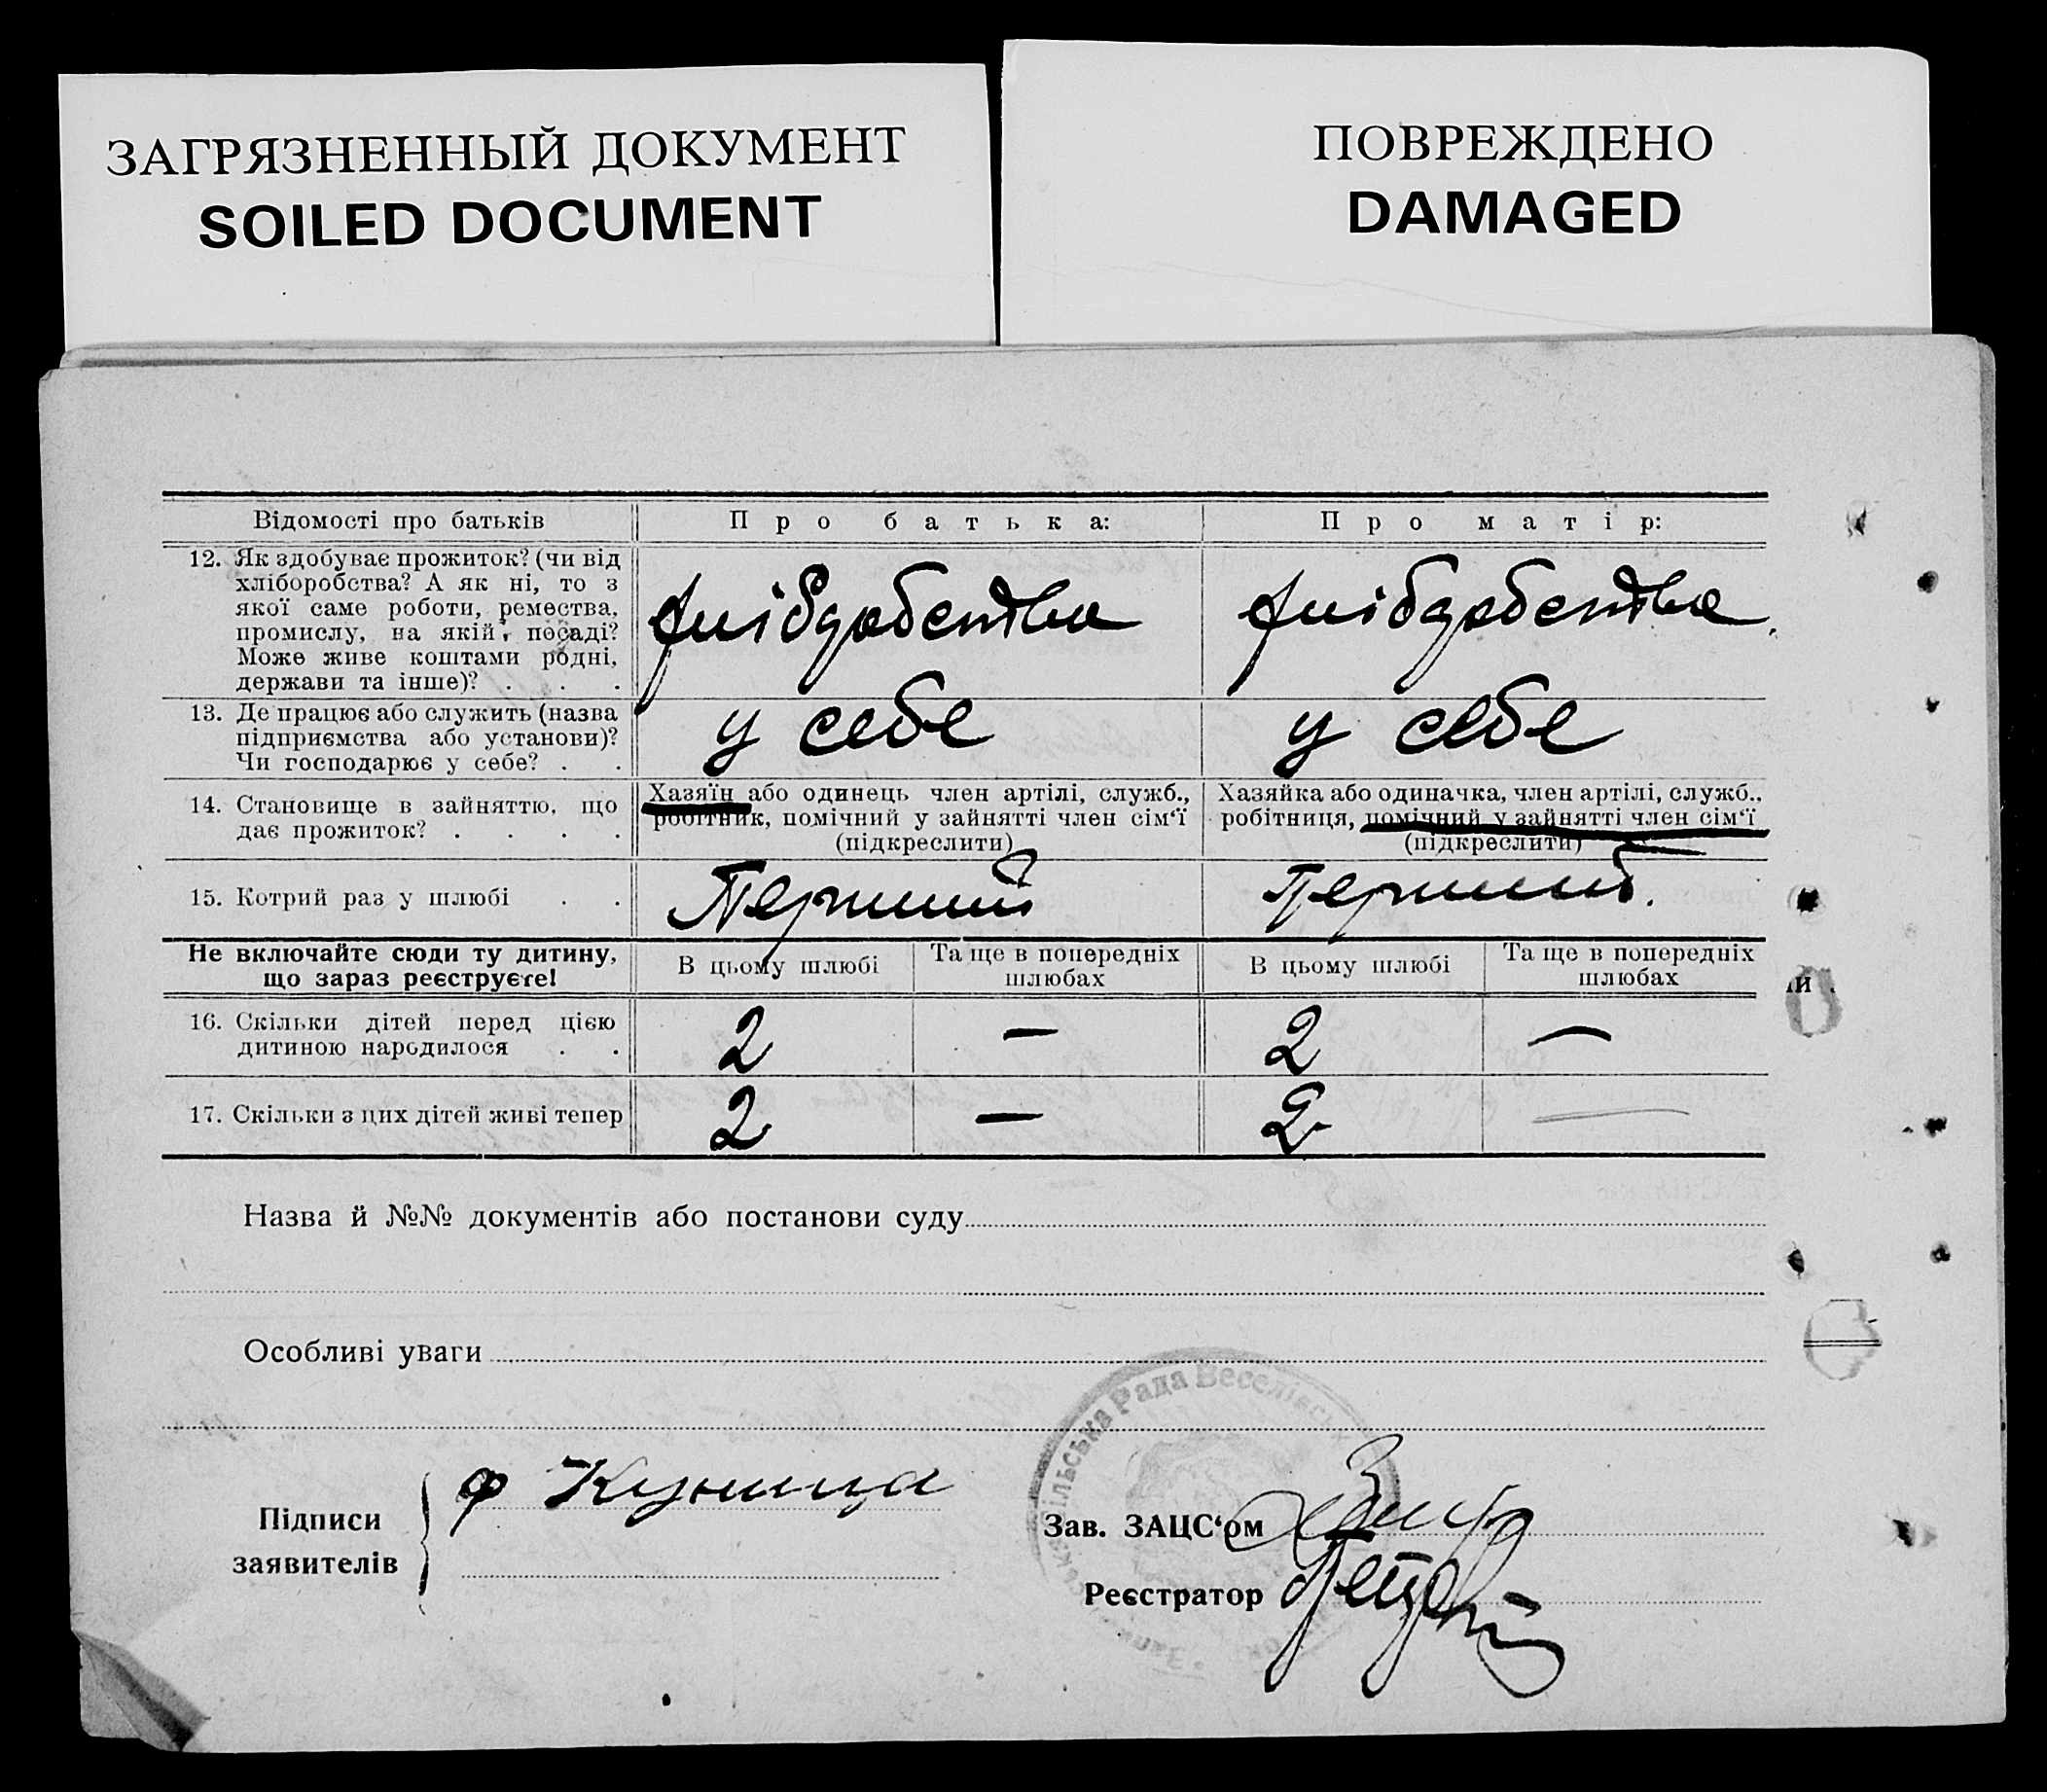 ЗАГРЯЗНЕННЫЙ ДОКУМЕНТ
SOILED DOCUMENT
ПОВРЕЖДЕНО
DAMAGED
Відомості про батьків
Про батька:
Про матір:
12. Як здобуває прожиток? (чи від
хліборобства? А як ні, то з
якої саме роботи, ремества,
промислу, на якій посаді?
Може живе коштами родні,
держави та інше)? . . .
хлібдробства
хлібдробства.
13. Де працює або служить (назва
підприємства або установи)?
Чи господарює у себе? . .
у себе
у себе
14. Становище в зайняттю, що
дає прожиток? . . . .
Хазяїн або одинець член артілі, служб.,
робітник, помічний у зайнятті член сім‘ї
(підкреслити)
Хазяйка або одиначка, член артілі, служб.,
робітниця, помічний у зайнятті член сім‘ї
(підкреслити)
15. Котрий раз у шлюбі . .
Перший
Перший.
Не включайте сюди ту дитину,
що зараз реєструєте!
В цьому шлюбі
Та ще в попередніх
шлюбах
В цьому шлюбі
Та ще в попередніх
шлюбах
16. Скільки дітей перед цією
дитиною народилося . .
2
—
2
—
17. Скільки з цих дітей живі тепер
2
—
2
—
Назва й №№ документів або постанови суду
Особливі уваги
Сільська Рада Веселівськ
Підписи
заявителів
ф Куница
Зав. ЗАЦС‘ом
Реєстратор